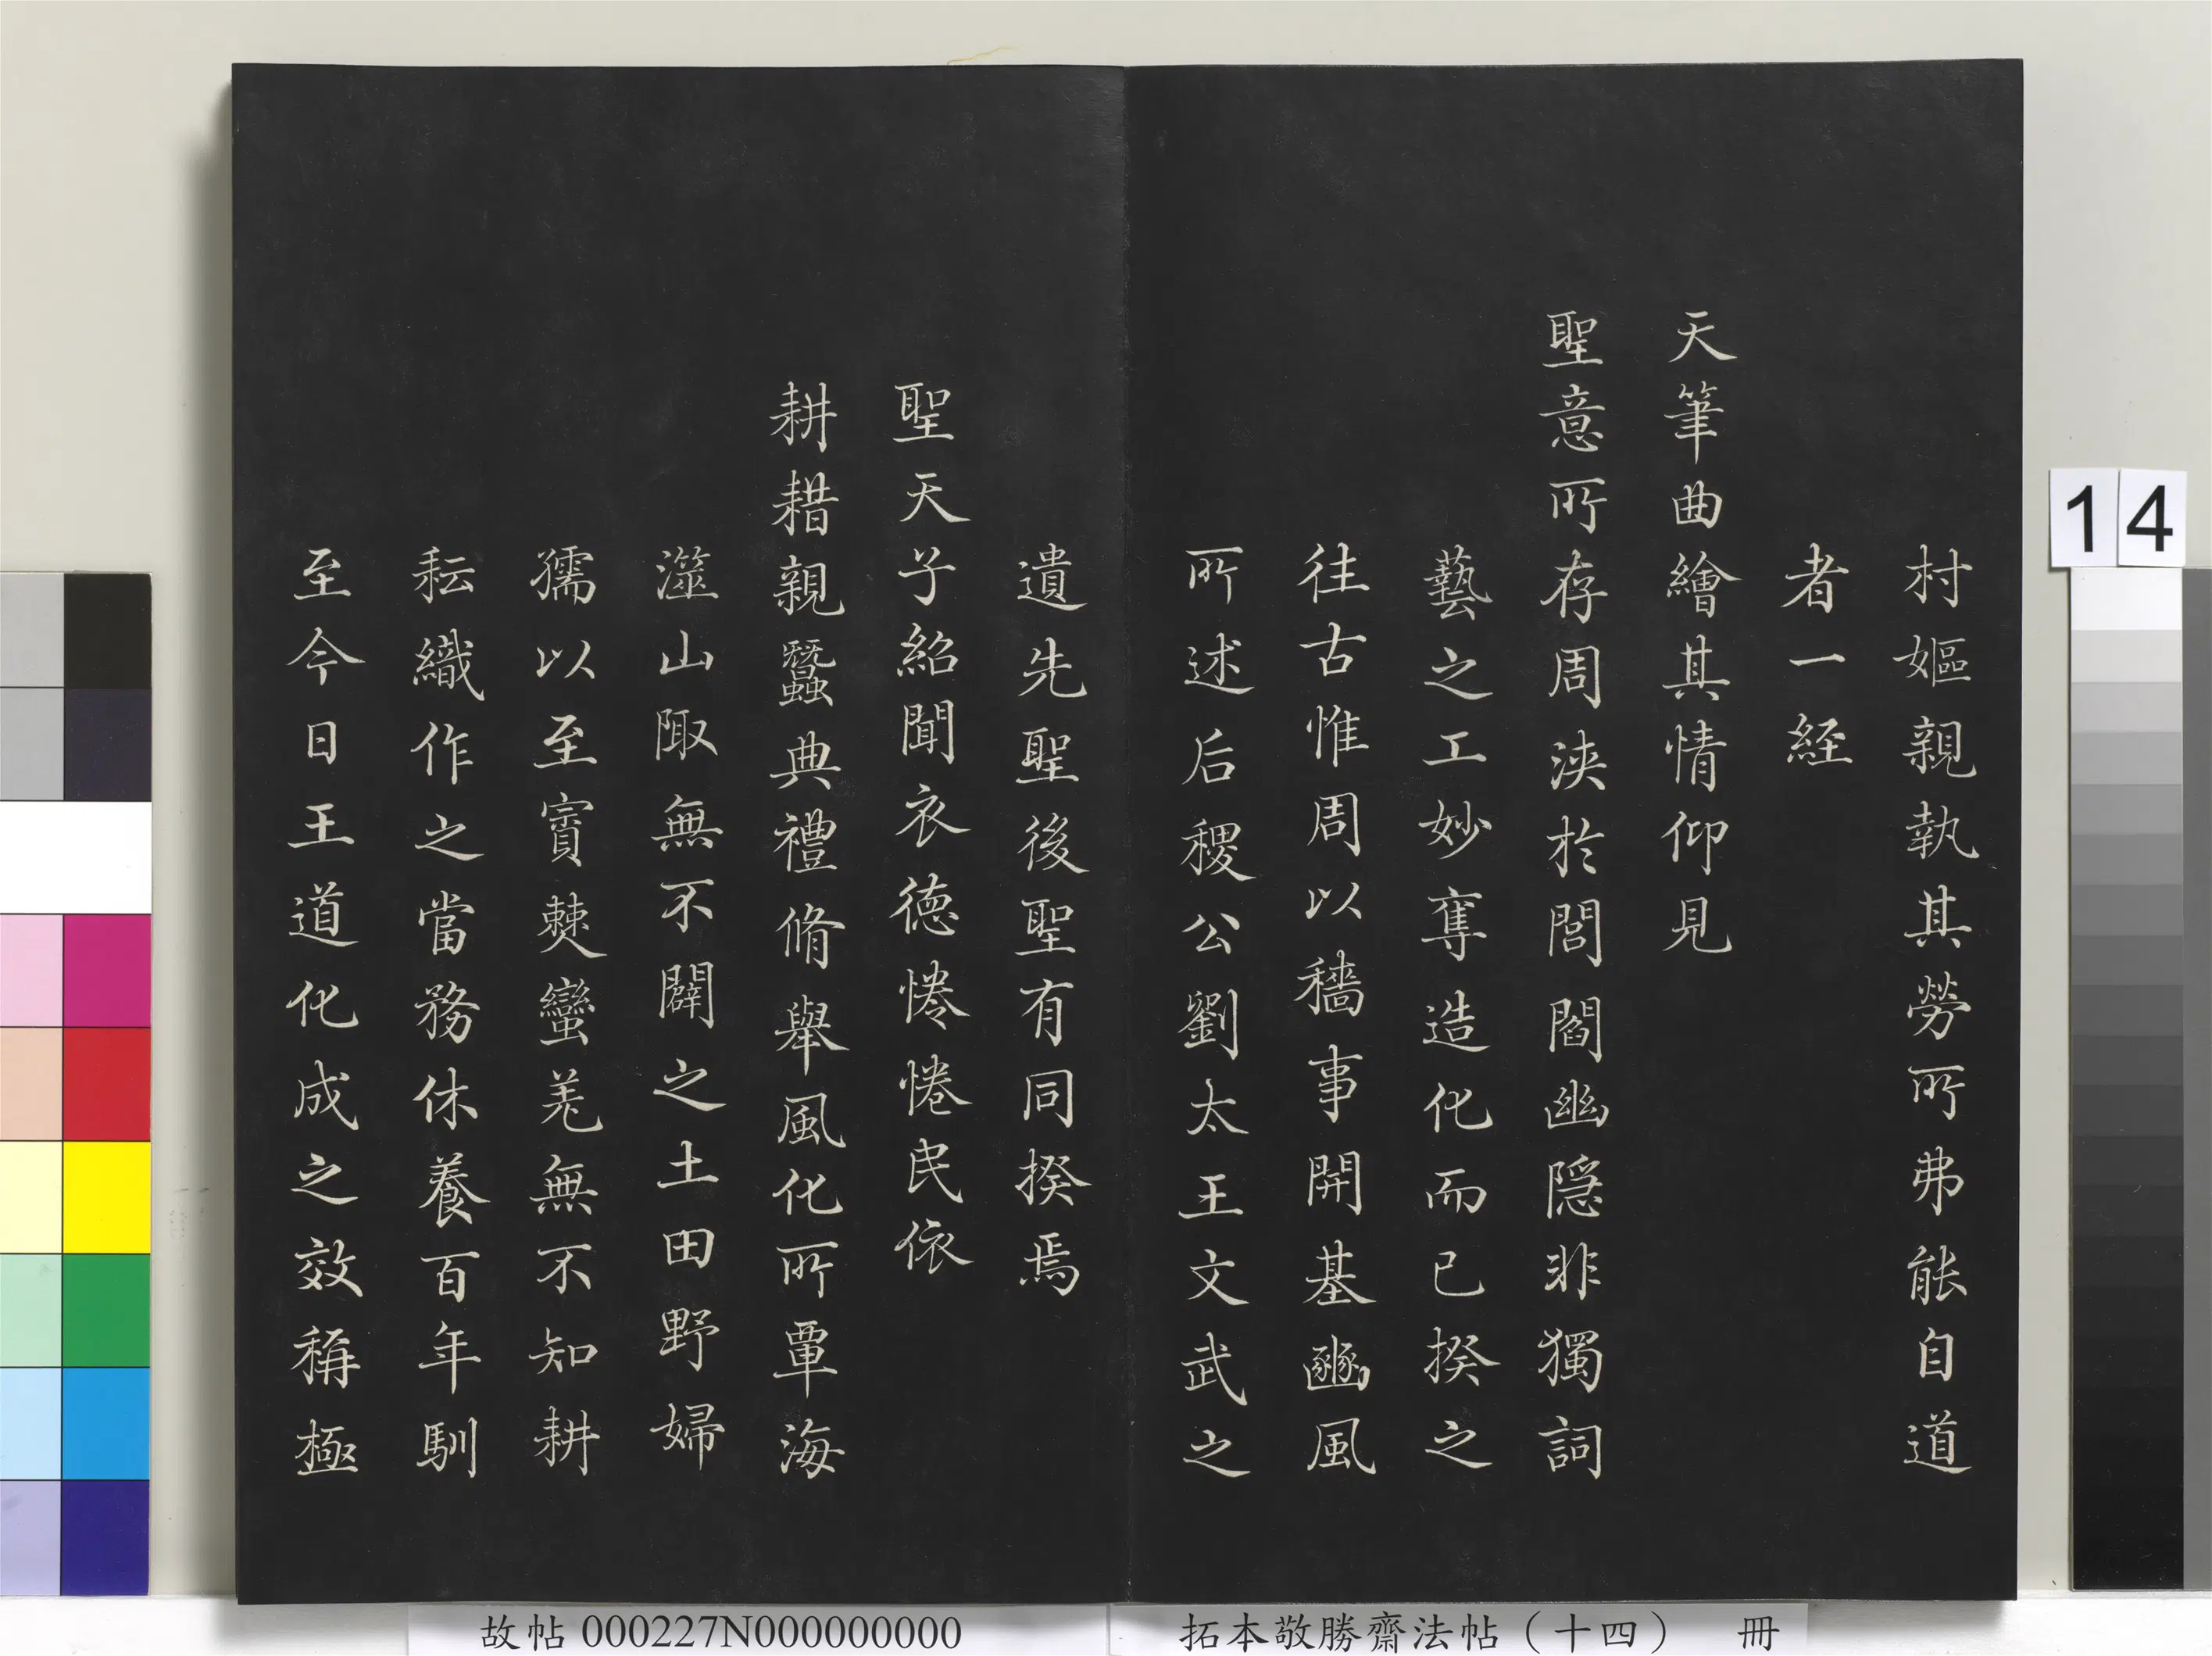 村嫗親執其勞所弗能自道
者一經
天筆曲繪其情仰見
聖意所存周浹於閭閻幽隱非獨詞
藝之工妙奪造化而已揆之
往古惟周以穡事開基豳風
所述后稷公劉太王文武之
遺先聖後聖有同揆焉
聖天子紹聞衣德惓惓民依
耕耤親蠶典禮脩舉風化所覃海
澨山陬無不闢之土田野婦
孺以至賨僰蠻羌無不知耕
耘織作之當務休養百年馴
至今日王道化成之效稱極
14
故帖000227N000000000
拓本敬勝齋法帖（十四） 冊